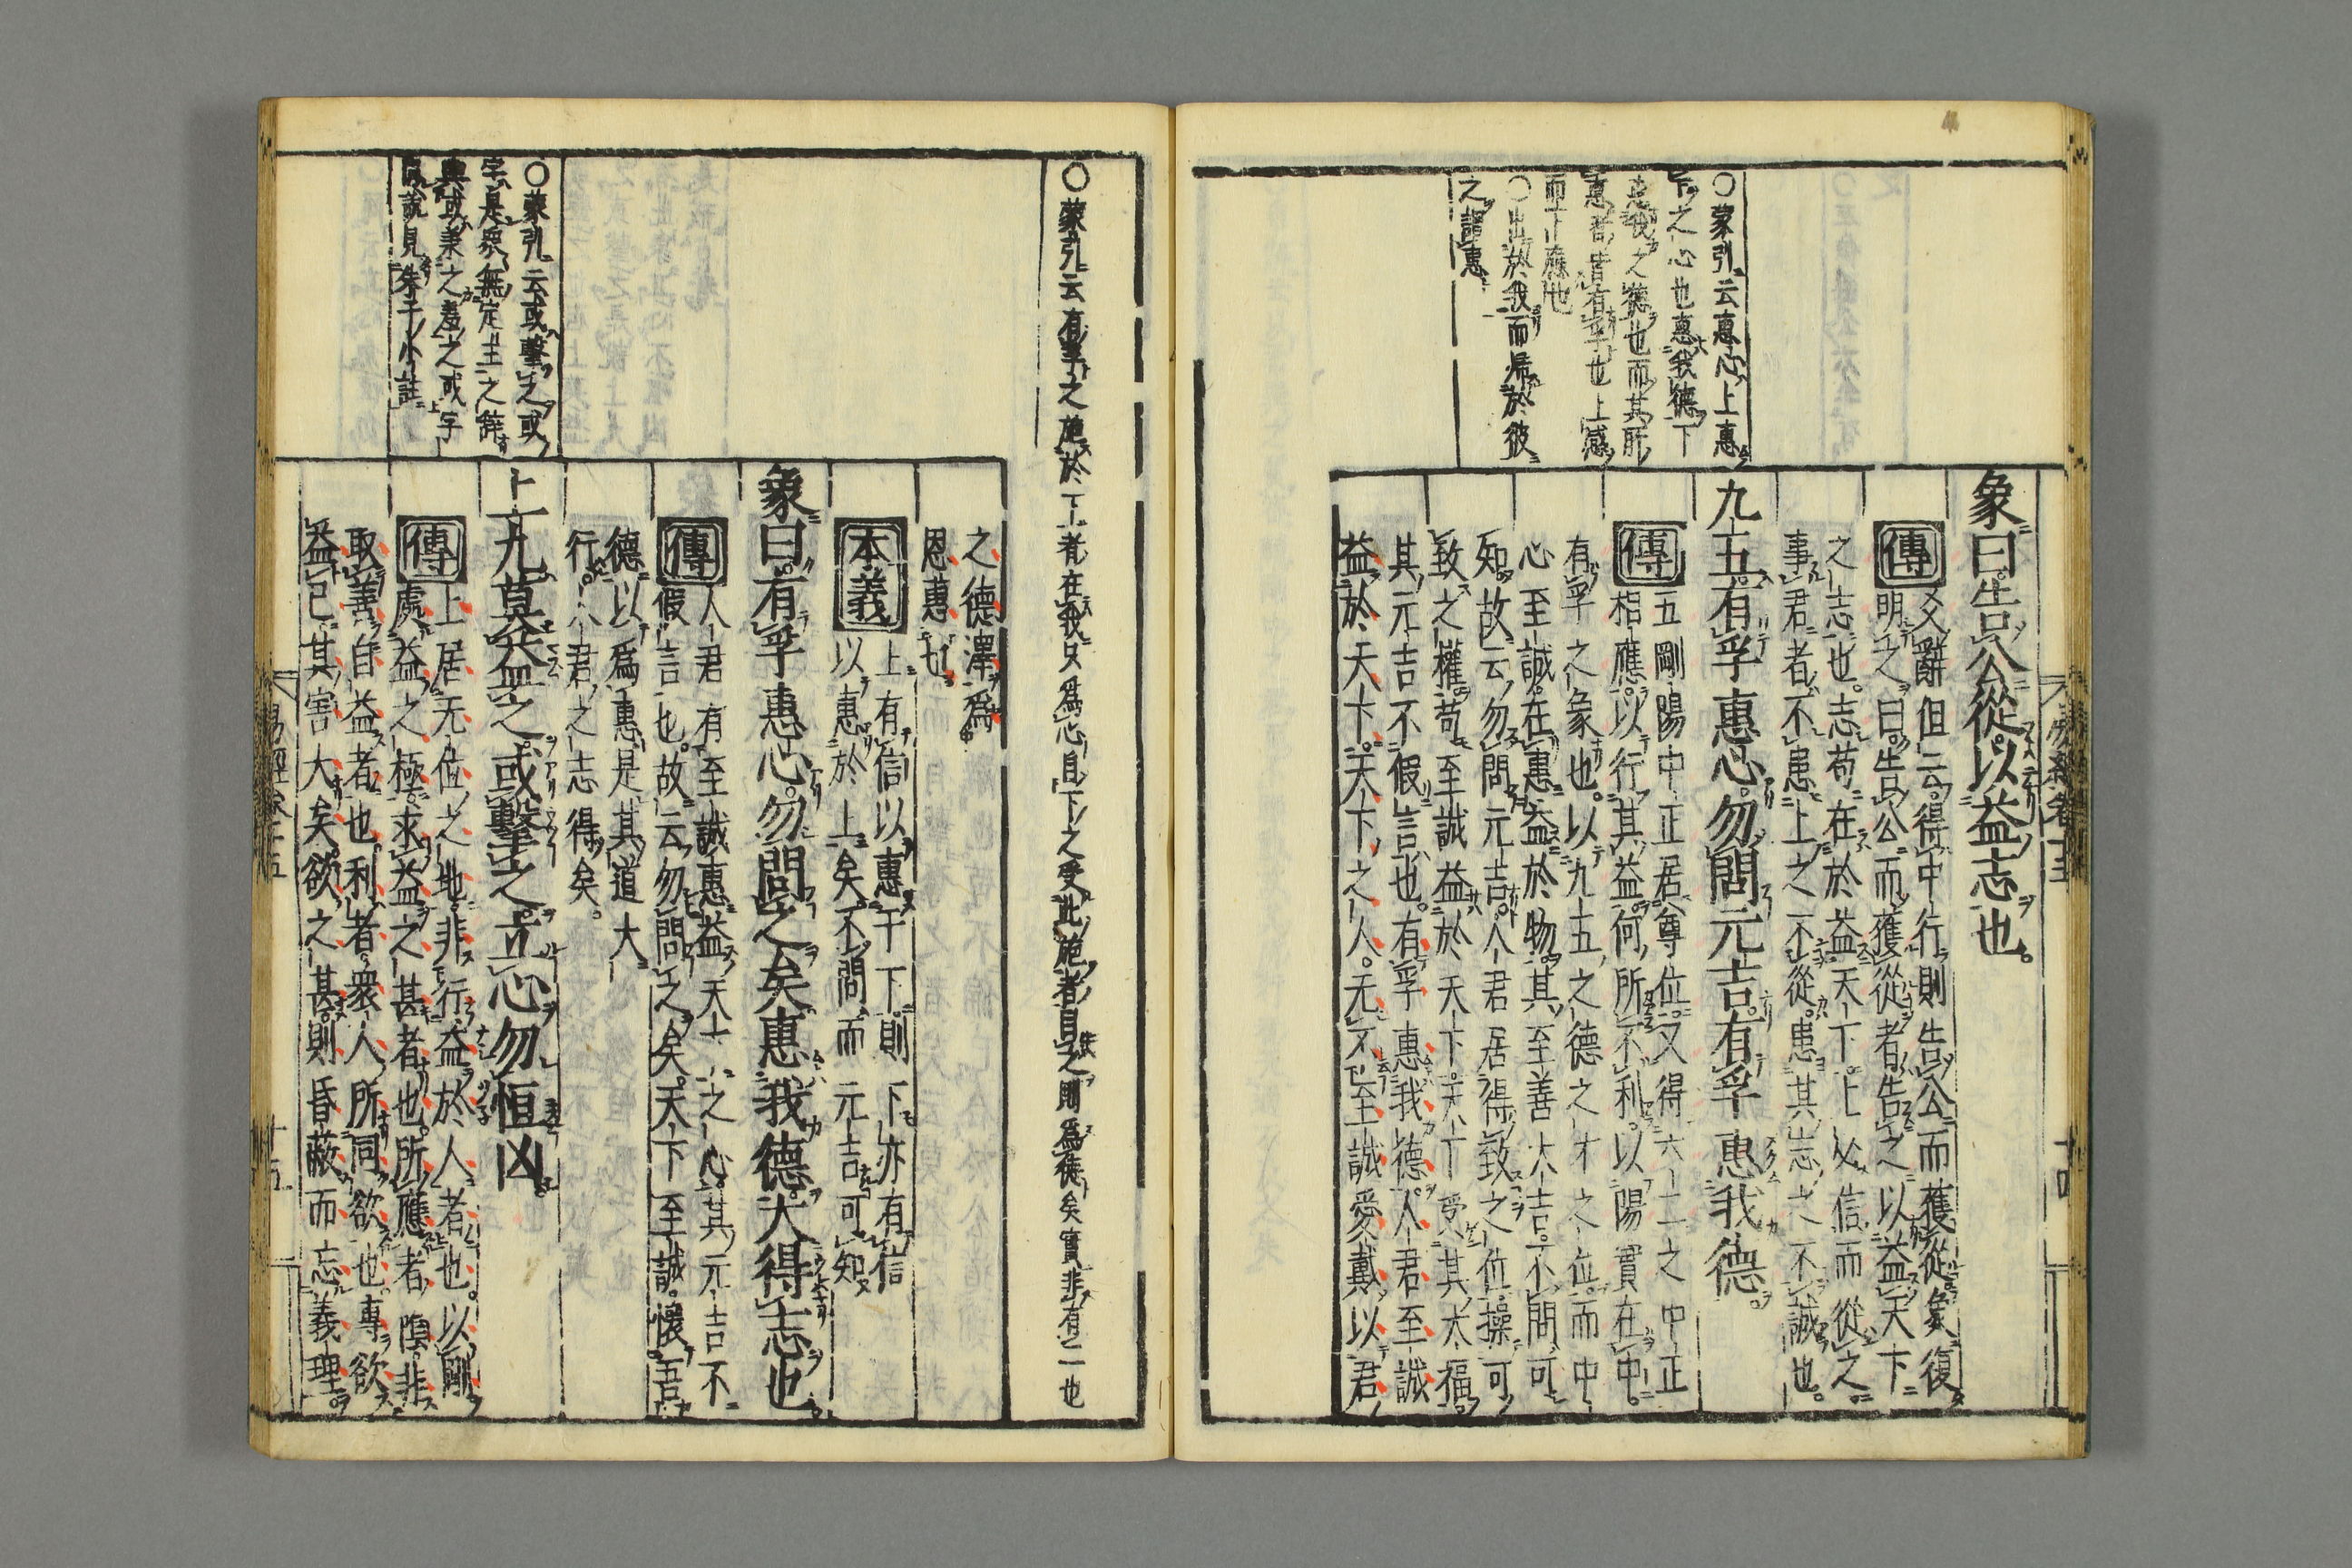 象曰。告公從。以益志也。
傳
爻辭但云。得中行則告公而獲從。象復
明之曰。告公而獲從者。告之以益天下
之志也。志苟在於益天下。上必信而從之。
事君者。不患上之不從。患其志之不誠也。
九五。有孚惠心。勿問元吉。有孚惠我德。
傳
五剛陽中正居尊位。又得六二之中正
相應。以行其益。何所不利。以陽實在中。
有孚之象也。以九五之德之才之位。而中
心至誠。在惠益於物。其至善大吉。不問可
知。故云勿問元吉。人君居得致之位。操可
致之權。苟至誠益於天下。天下受其大福。
其元吉不假言也。有孚惠我德。人君至誠
益於天下。天下之人。无不至誠愛戴。以君
○蒙引云惠心上惠
下之心也惠我德下
惠我之德也而其所
惠者皆有孚也上感
而下應也
○出於我而歸於彼
之謂惠
○蒙引云有孚之施於下者在我只爲心自下之受此施者目之則爲德矣實非有二也
之德澤爲
恩惠也
本義
上有信以惠于下。則下亦有信
以惠於上矣。不問而元吉可知
象曰。有孚惠心。勿問之矣。惠我德。大得志也
傳
人君有至誠惠益天下之心。其元吉不
假言也。故云勿問之矣。天下至誠。懷吾
德以爲惠。是其道大
行。人君之志得矣。
上九。莫益之。或擊之。立心勿恒凶。
傳
上居无位之地。非行益於人者也。以剛
處益之極。求益之甚者也。所應者陰。非
取善自益者也。利者。衆人所同欲也。專欲
益己。其害大矣。欲之甚。則昏蔽而忘義理。
○蒙引云或擊之或
字是衆無定主之辭
與或承之羞之或字
同說見朱子小註
易經卷十五
十五